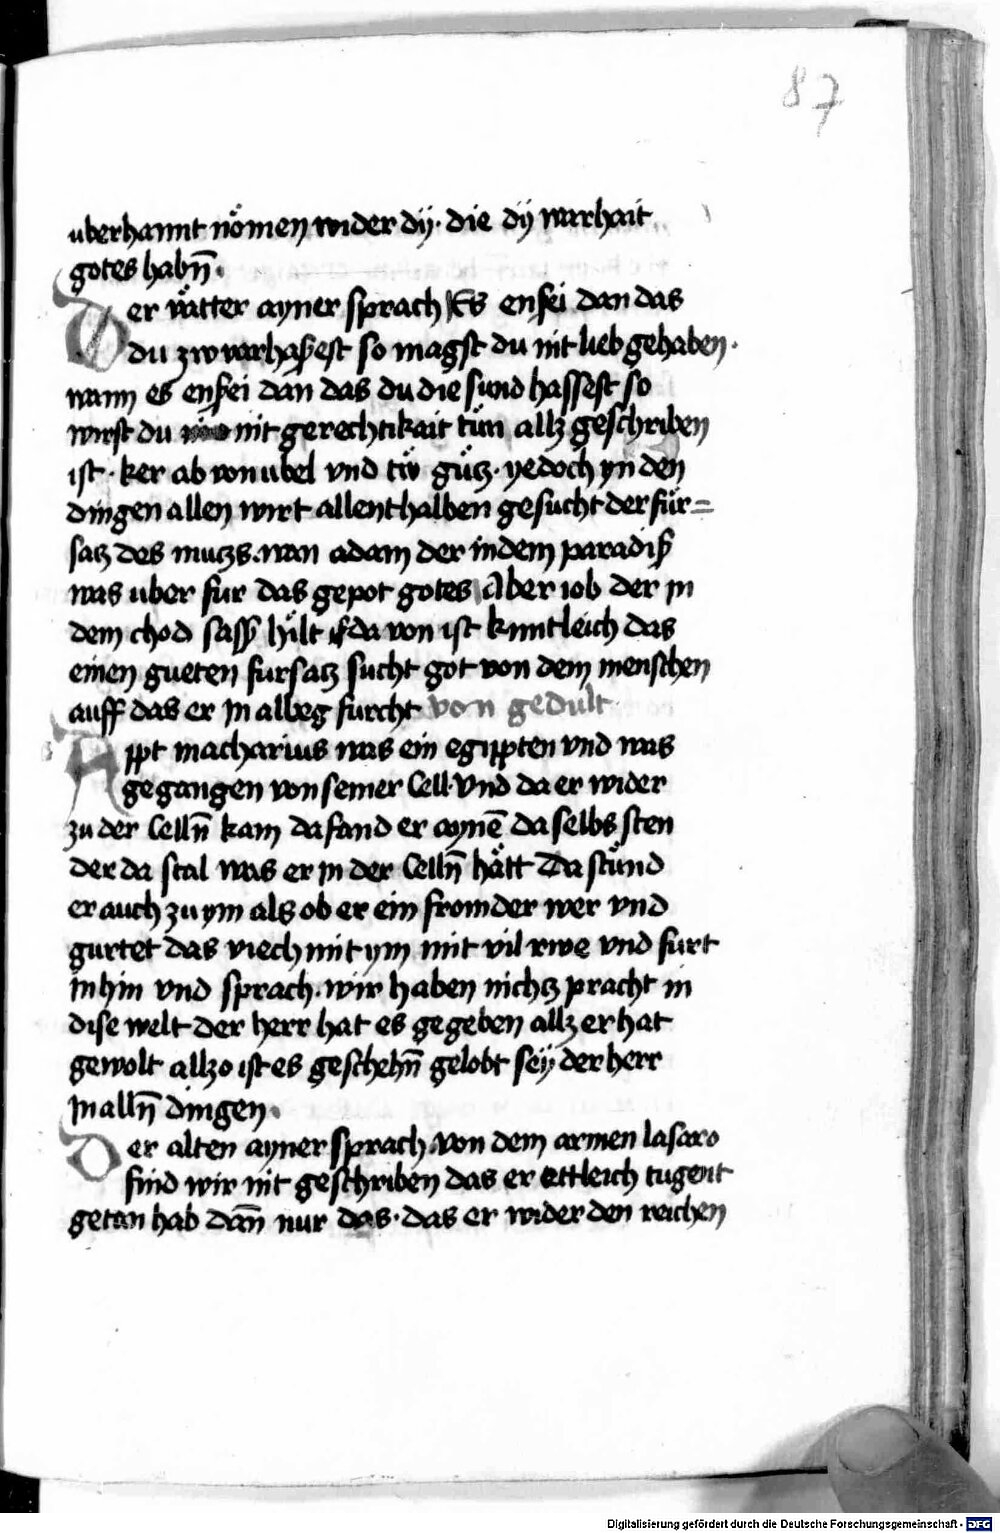 87
uberhannt nömen wider dÿ · die dÿ warhait
gotes habn̄ ·
Der vätter ayner sprach Es ensei dan das
du zw vorhassest so magst du nit lieb gehaben ·
wann es ensei dan das du die sund hassest so
wirst du nit gerechtikait tün allz geschriben
ist · ker ab von ubel vnd tü gütz · yedoch yn den
dingen allen wirt allenthalben gesucht der für=
satz des mutzs · wan adam der in dem paradiß
was uber fur das gepot gotes Aber iob der in
dem chod sass hilt da von ist kuntleich das
einen gueten fursatz sucht got von dem menschen
auff das er in albeg furcht von gedult
Appt macharius was ein egippten vnd was
gegangen von seiner Cell · Vnd da er wider
zu der Celln̄ kam da fand er aynē da selbs sten
der da stal was er in der Celln̄ hätt Da stünd
er auch zu ym als ob er ein fromder wer vnd
gurtet das viech mit ym mit vil rwe vnd furt
in hin vnd sprach · wir haben nichtz pracht in
dise welt der herr hat es gegeben allz er hat
gewolt allzo ist es geschehn̄ gelobt seÿ der herr
in alln̄ dingen ·
Der alten ayner sprach · von dem armen lasaro
find wir nit geschriben das er ettleich tugent
getan hab dan̄ nur das · das er wider den reichen
Digitalisierung gefördert durch die Deutsche Forschungsgemeinschaft - DFG